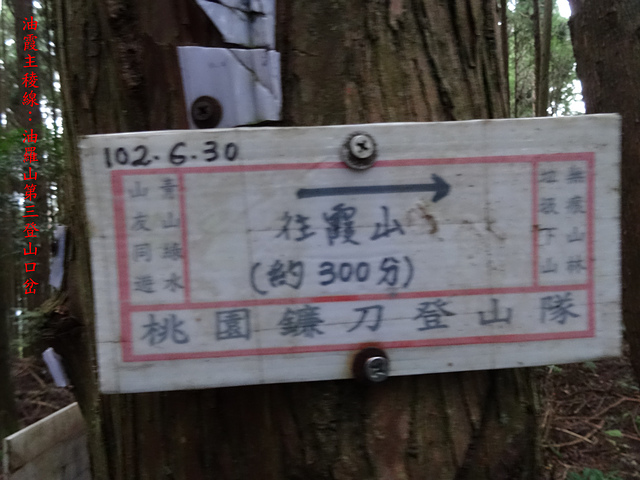 油霞主稜線：油羅山第三登山口岔
102.6.30
青山綠水
山友同遊
往霞山
(約300分)
無痕山林
垃圾下山
桃園鐮刀登山隊